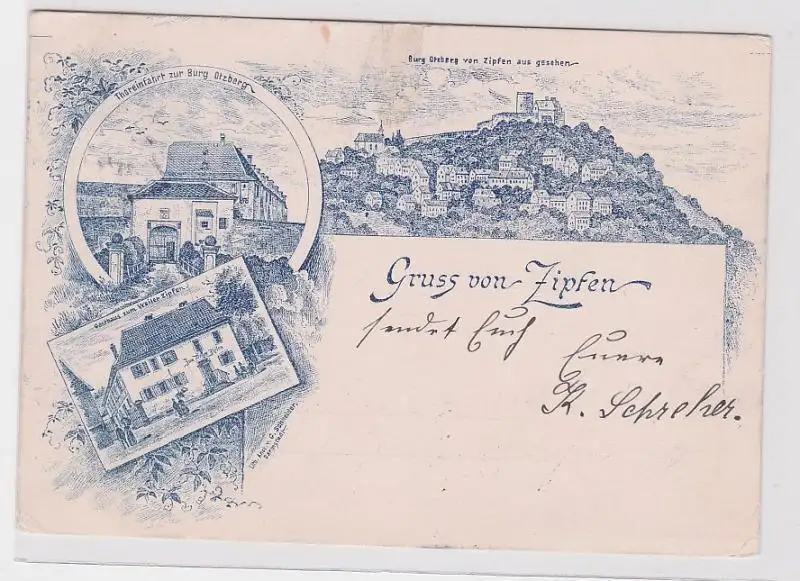 Burg Otzberg von Zipfen aus gesehen
Thoreinfahrt zur Burg Otzberg
Gruss von Zipfen
sendet Euch
Euere
K. Schreher.
Gasthaus zum Weiler Zipfen
Lith. Anst. v. G.